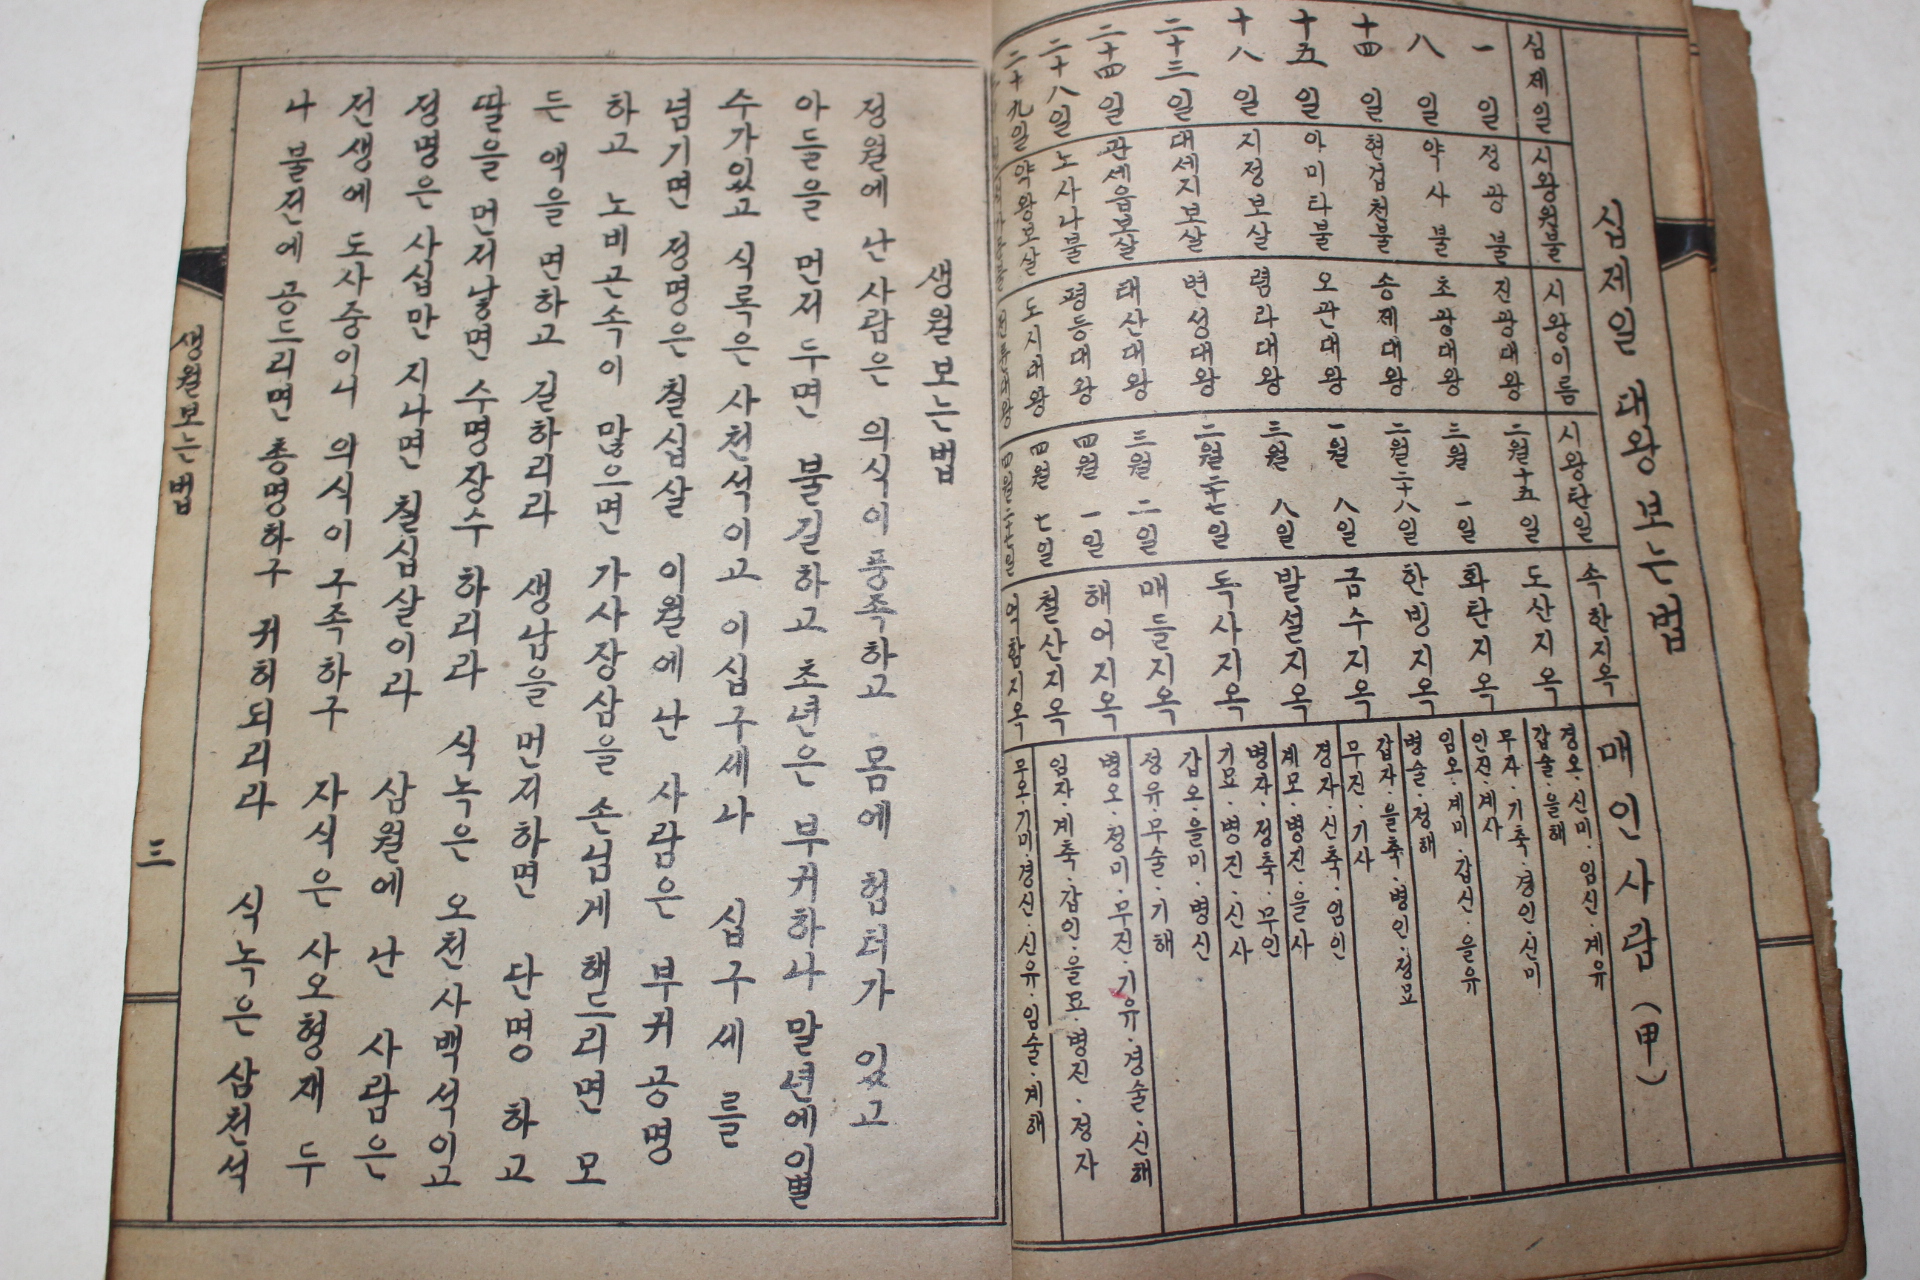 십제일 대왕 보는법
십제일 시왕원불 시왕이름 시왕탄일 속한지옥 매인사람(甲)
一日 정광불 진광대왕 二월十五일 도산지옥 경오·신미·임신·계유 갑술·을해
八일 약사불 초광대왕 三월一일 화탄지옥 무자·기축·경인·신미 인진·계사
十四일 현겁천불 송제대왕 二월二十八일 한빙지옥 임오·계미·갑신·을유 병술·정해
十五일 아미타불 오관대왕 一월八일 금수지옥 갑자·을축·병인·정묘 무진·기사
十八일 지정보살 렴라대왕 三월八일 발설지옥 경자·신축·임인 계모·병진·을사
二十三일 대세지보살 변성대왕 二월二十七일 독사지옥 병자·정축·무인 기묘·병진·신사
二十四일 관세음보살 태산대왕 三월二일 매들지옥 갑오·을미·병신 정유무술·기해
二十八일 노사나불 평등대왕 四월一일 해어지옥 병오·정미·무진·기유·경술·신해
二十九일 약왕보살 도시대왕 四월七일 철산지옥 임자·계축·갑인·을묘·병진·정자
四월二十七일 지옥 무오·기미·경신·신유·임술·계해
생월보는법
정월에 난 사람은 의식이 풍족하고 몸에 험터가 있고
아들을 먼저 두면 불길하고 초년은 부귀하나 말년에 이별
수가있고 식록은 사천석이고 이십구세나 십구세를
넘기면 정명은 칠십살 이월에 난 사람은 부귀공명
하고 노비곤속이 많으면 가사장삼을 손님게 해드리면 모
든 액을 면하고 길하리라 생남을 먼저하면 단명하고
딸을 먼저낳면 수명장수 하리라 식녹은 오천사백석이고
정명은 사십만 지나면 칠십살이라 삼월에 난 사람은
전생에 도사중이니 의식이 구족하구 자식은 사오형재 두
나 불전에 공드리면 총명하구 귀히되리라 식녹은 삼천석
생월보는법
三